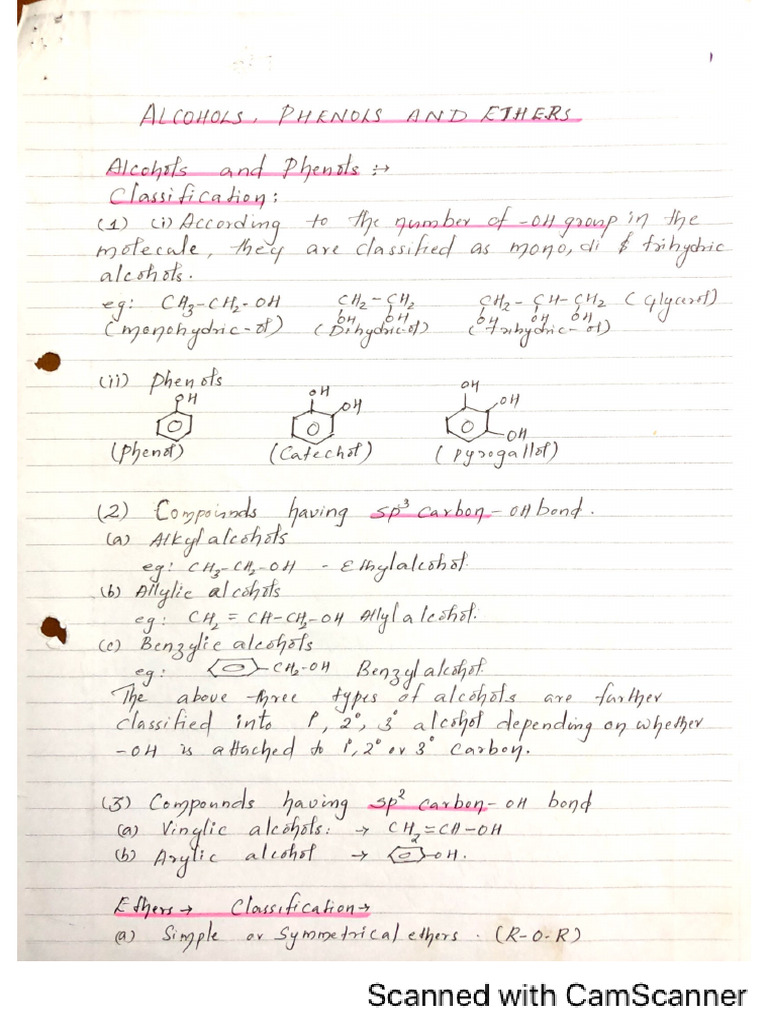 1
ALCOHOLS, PHENOLS AND ETHERS
Alcohols and Phenols :→
Classification:
(1) (i) According to the number of -OH group in the
molecule, they are classified as mono, di & trihydric
alcohols.
eg: CH₃-CH₂-OH CH₂-CH₂ CH₂-CH-CH₂ (Glycerol)
OH OH OH OH OH
(monohydric-ol) (Dihydric-ol) (trihydric-ol)
(ii) Phenols
OH OH OH OH OH OH
(Phenol) (Catechol) (Pyrogallol)
(2) Compounds having sp³ carbon-OH bond.
(a) Alkyl alcohols
eg: CH₃-CH₂-OH - Ethyl alcohol.
(b) Allylic alcohols
eg: CH₂ = CH-CH₂-OH Allyl alcohol.
(c) Benzylic alcohols
eg: -CH₂-OH Benzyl alcohol
The above three types of alcohols are further
classified into 1°, 2°, 3° alcohol depending on whether
-OH is attached to 1°, 2° or 3° Carbon.
(3) Compounds having sp² carbon-OH bond
(a) Vinylic alcohols: → CH₂=CH-OH
(b) Arylic alcohol → -OH.
Ethers → Classification →
(a) Simple or Symmetrical ethers. (R-O-R)
Scanned with CamScanner